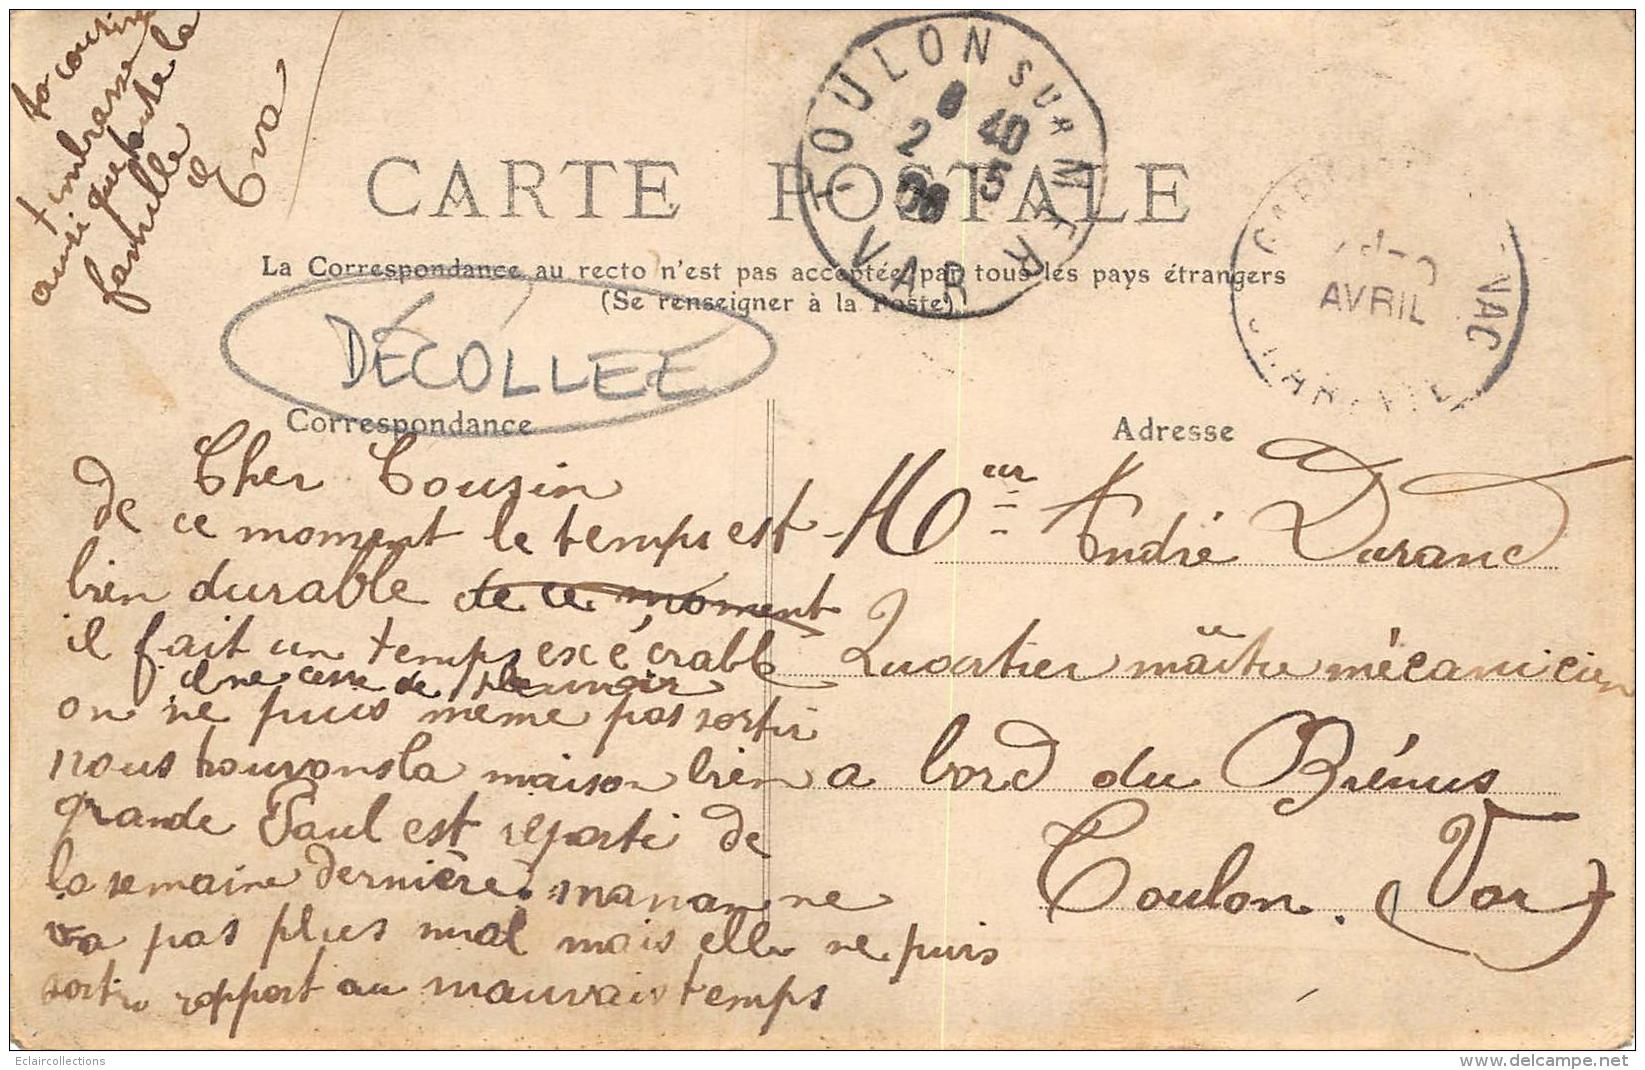 CARTE POSTALE
La Correspondance au recto n'est pas acceptée par tous les pays étrangers
(Se renseigner à la Poste)
DÉCOLLEE
Correspondance
Cher Cousin
de ce moment le temps est
bien durable de ce moment
il fait un temps exécrable
il ne cesse de pleuvoir
on ne puis même pas sortir
nous trouvons la maison bien
grande Paul est reparti de
la semaine dernière. maman ne
va pas plus mal mais elle ne puis
sortir rapport au mauvais temps
ta cousine
t'embrasse
ainsi que toute la
famille
Eva
Adresse
Mr André Durand
Quartier maître mécanicien
a bord du Brénus
Toulon. (Var)
TOULON SUR MER
8 40
2 5
08
VAR
AVRIL
NAC
Eclaircollections
www.delcampe.net